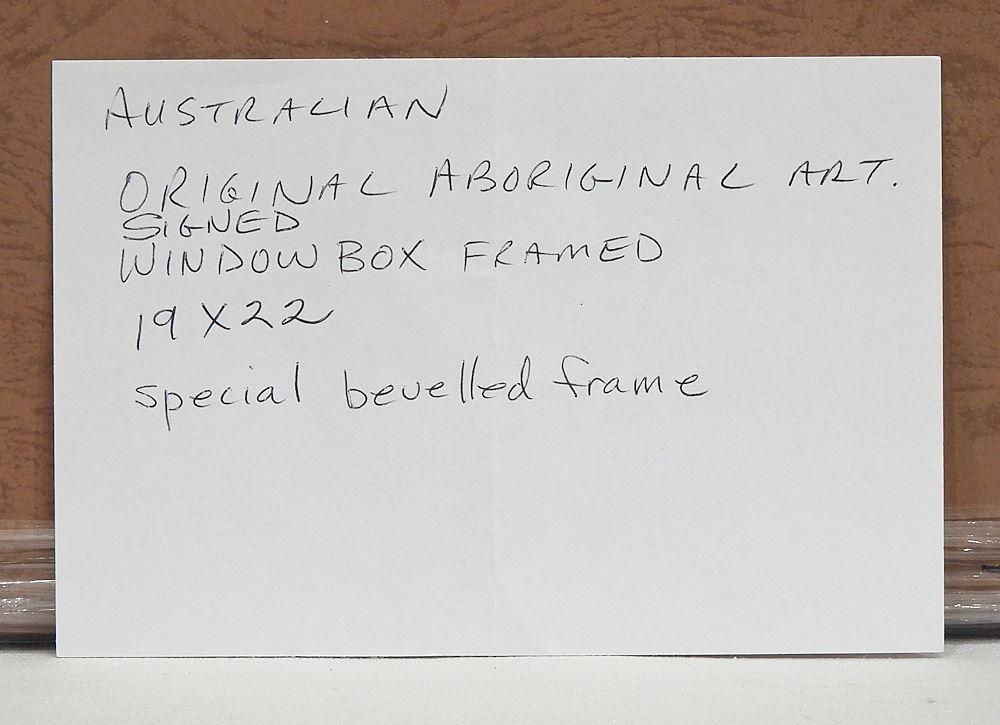 AUSTRALIAN
ORIGINAL ABORIGINAL ART.
SIGNED
WINDOW BOX FRAMED
19 X 22
special bevelled frame